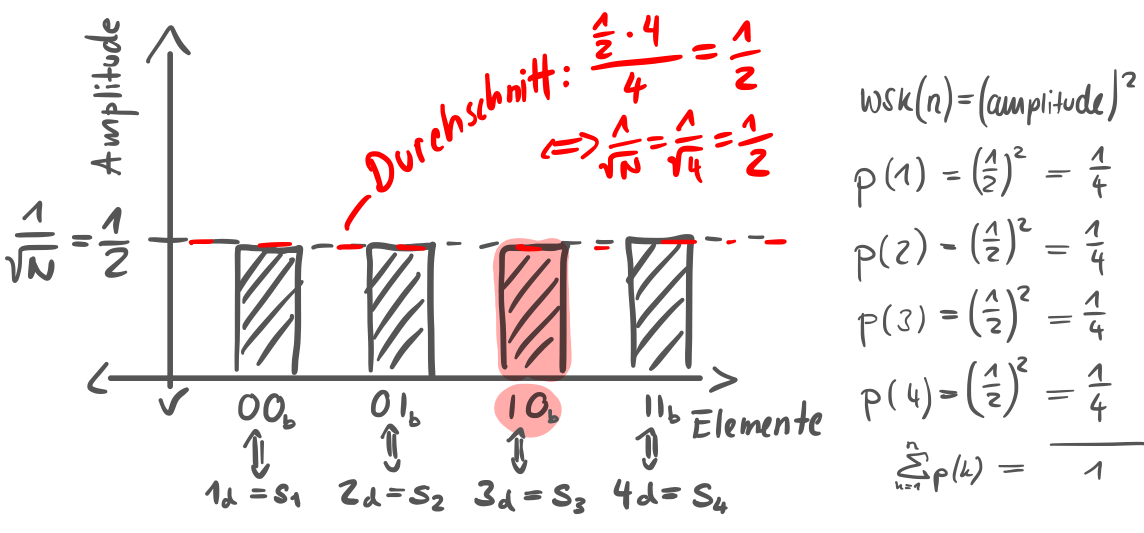 Amplitude
Durchschnitt: (1/2 · 4)/4 = 1/2
⇔ 1/√N = 1/√4 = 1/2
1/√N = 1/2
00b 01b 10b 11b Elemente
1d = S1 2d = S2 3d = S3 4d = S4
wsk(n) = (amplitude)²
p(1) = (1/2)² = 1/4
p(2) = (1/2)² = 1/4
p(3) = (1/2)² = 1/4
p(4) = (1/2)² = 1/4
∑ₖ₌₁ⁿ p(k) = 1